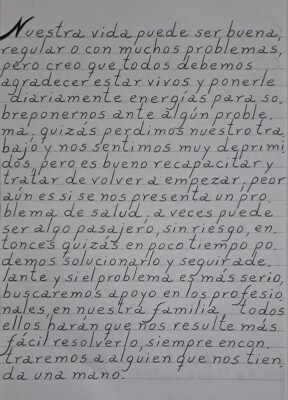 Nuestra vida puede ser buena,
regular o con muchos problemas,
pero creo que todos debemos
agradecer estar vivos y ponerle
diariamente energías para so_
breponernos ante algún proble_
ma, quizás perdimos nuestro tra_
bajo y nos sentimos muy deprimi_
dos, pero es bueno recapacitar y
tratar de volver a empezar, peor
aún es si se nos presenta un pro_
blema de salud, a veces puede
ser algo pasajero, sin riesgo, en_
tonces quizás en poco tiempo po_
demos solucionarlo y seguir ade_
lante y si el problema es más serio,
buscaremos apoyo en los profesio_
nales, en nuestra familia, todos
ellos harán que nos resulte más
fácil resolverlo, siempre encon_
traremos a alguien que nos tien_
da una mano.